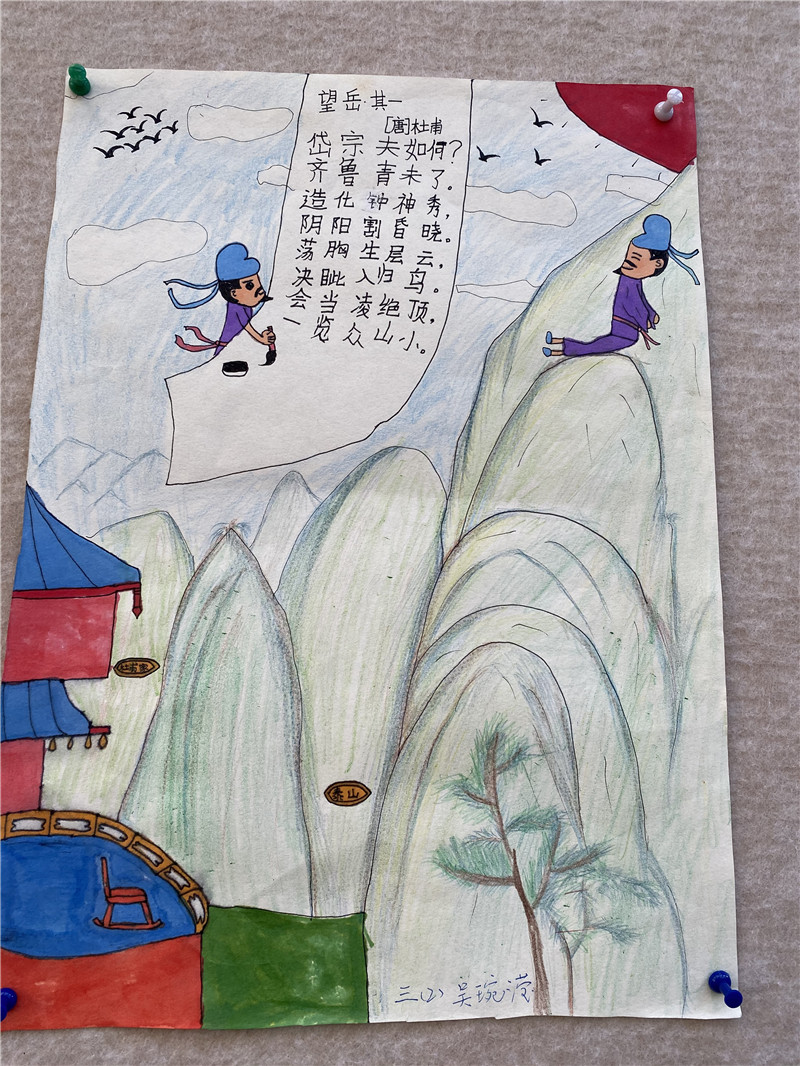 望岳·其一
[唐]杜甫
岱宗夫如何？
齐鲁青未了。
造化钟神秀，
阴阳割昏晓。
荡胸生层云，
决眦入归鸟。
会当凌绝顶，
一览众山小。
杜甫家
泰山
三(2) 吴琬滢